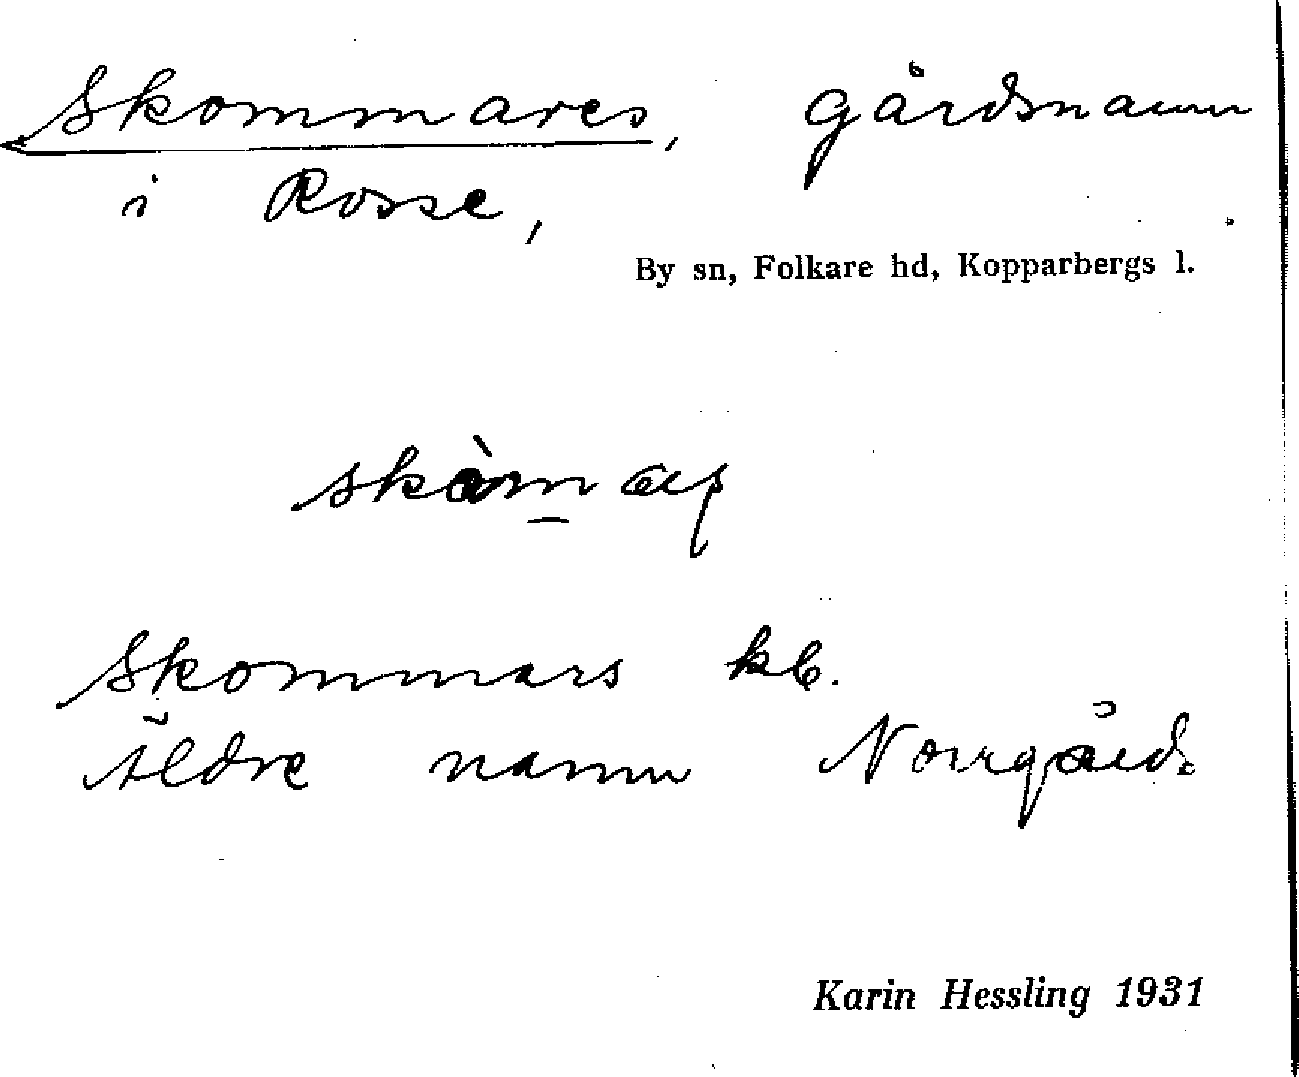 Skommares, gårdsnamn
i Rosse,
By sn, Folkare hd, Kopparbergs l.
Skommars kb.
Äldre namn Norrgårds
Karin Hessling 1931